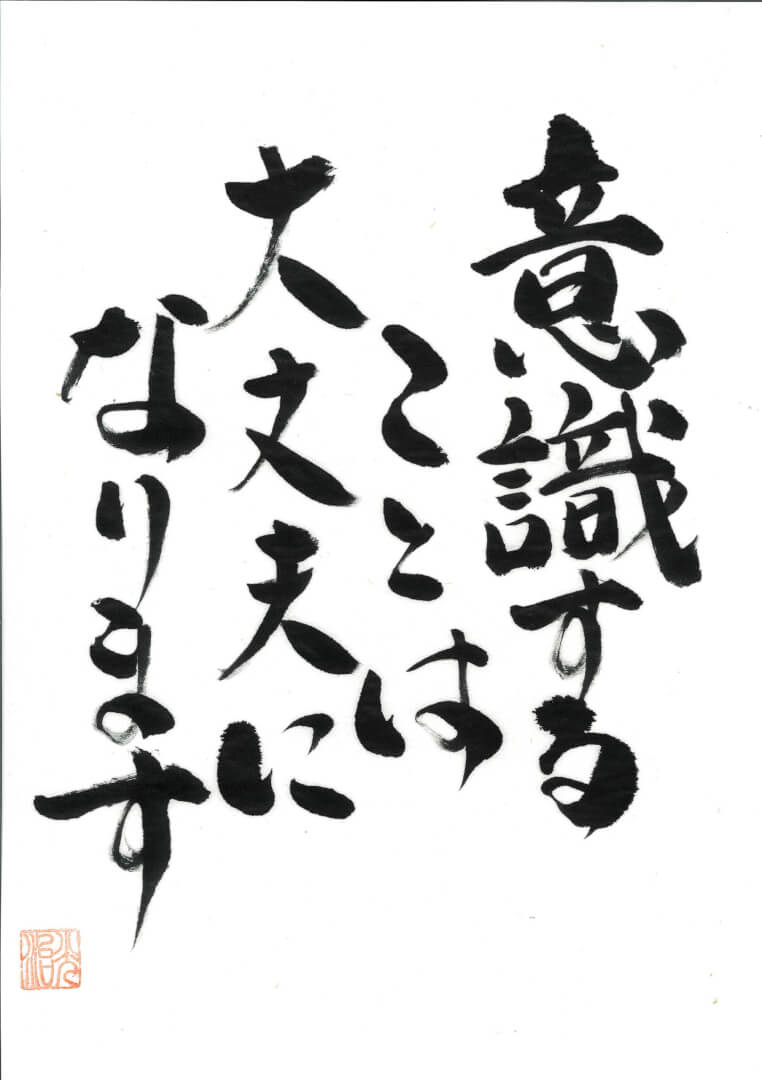 意識する
ことは
大丈夫に
なります